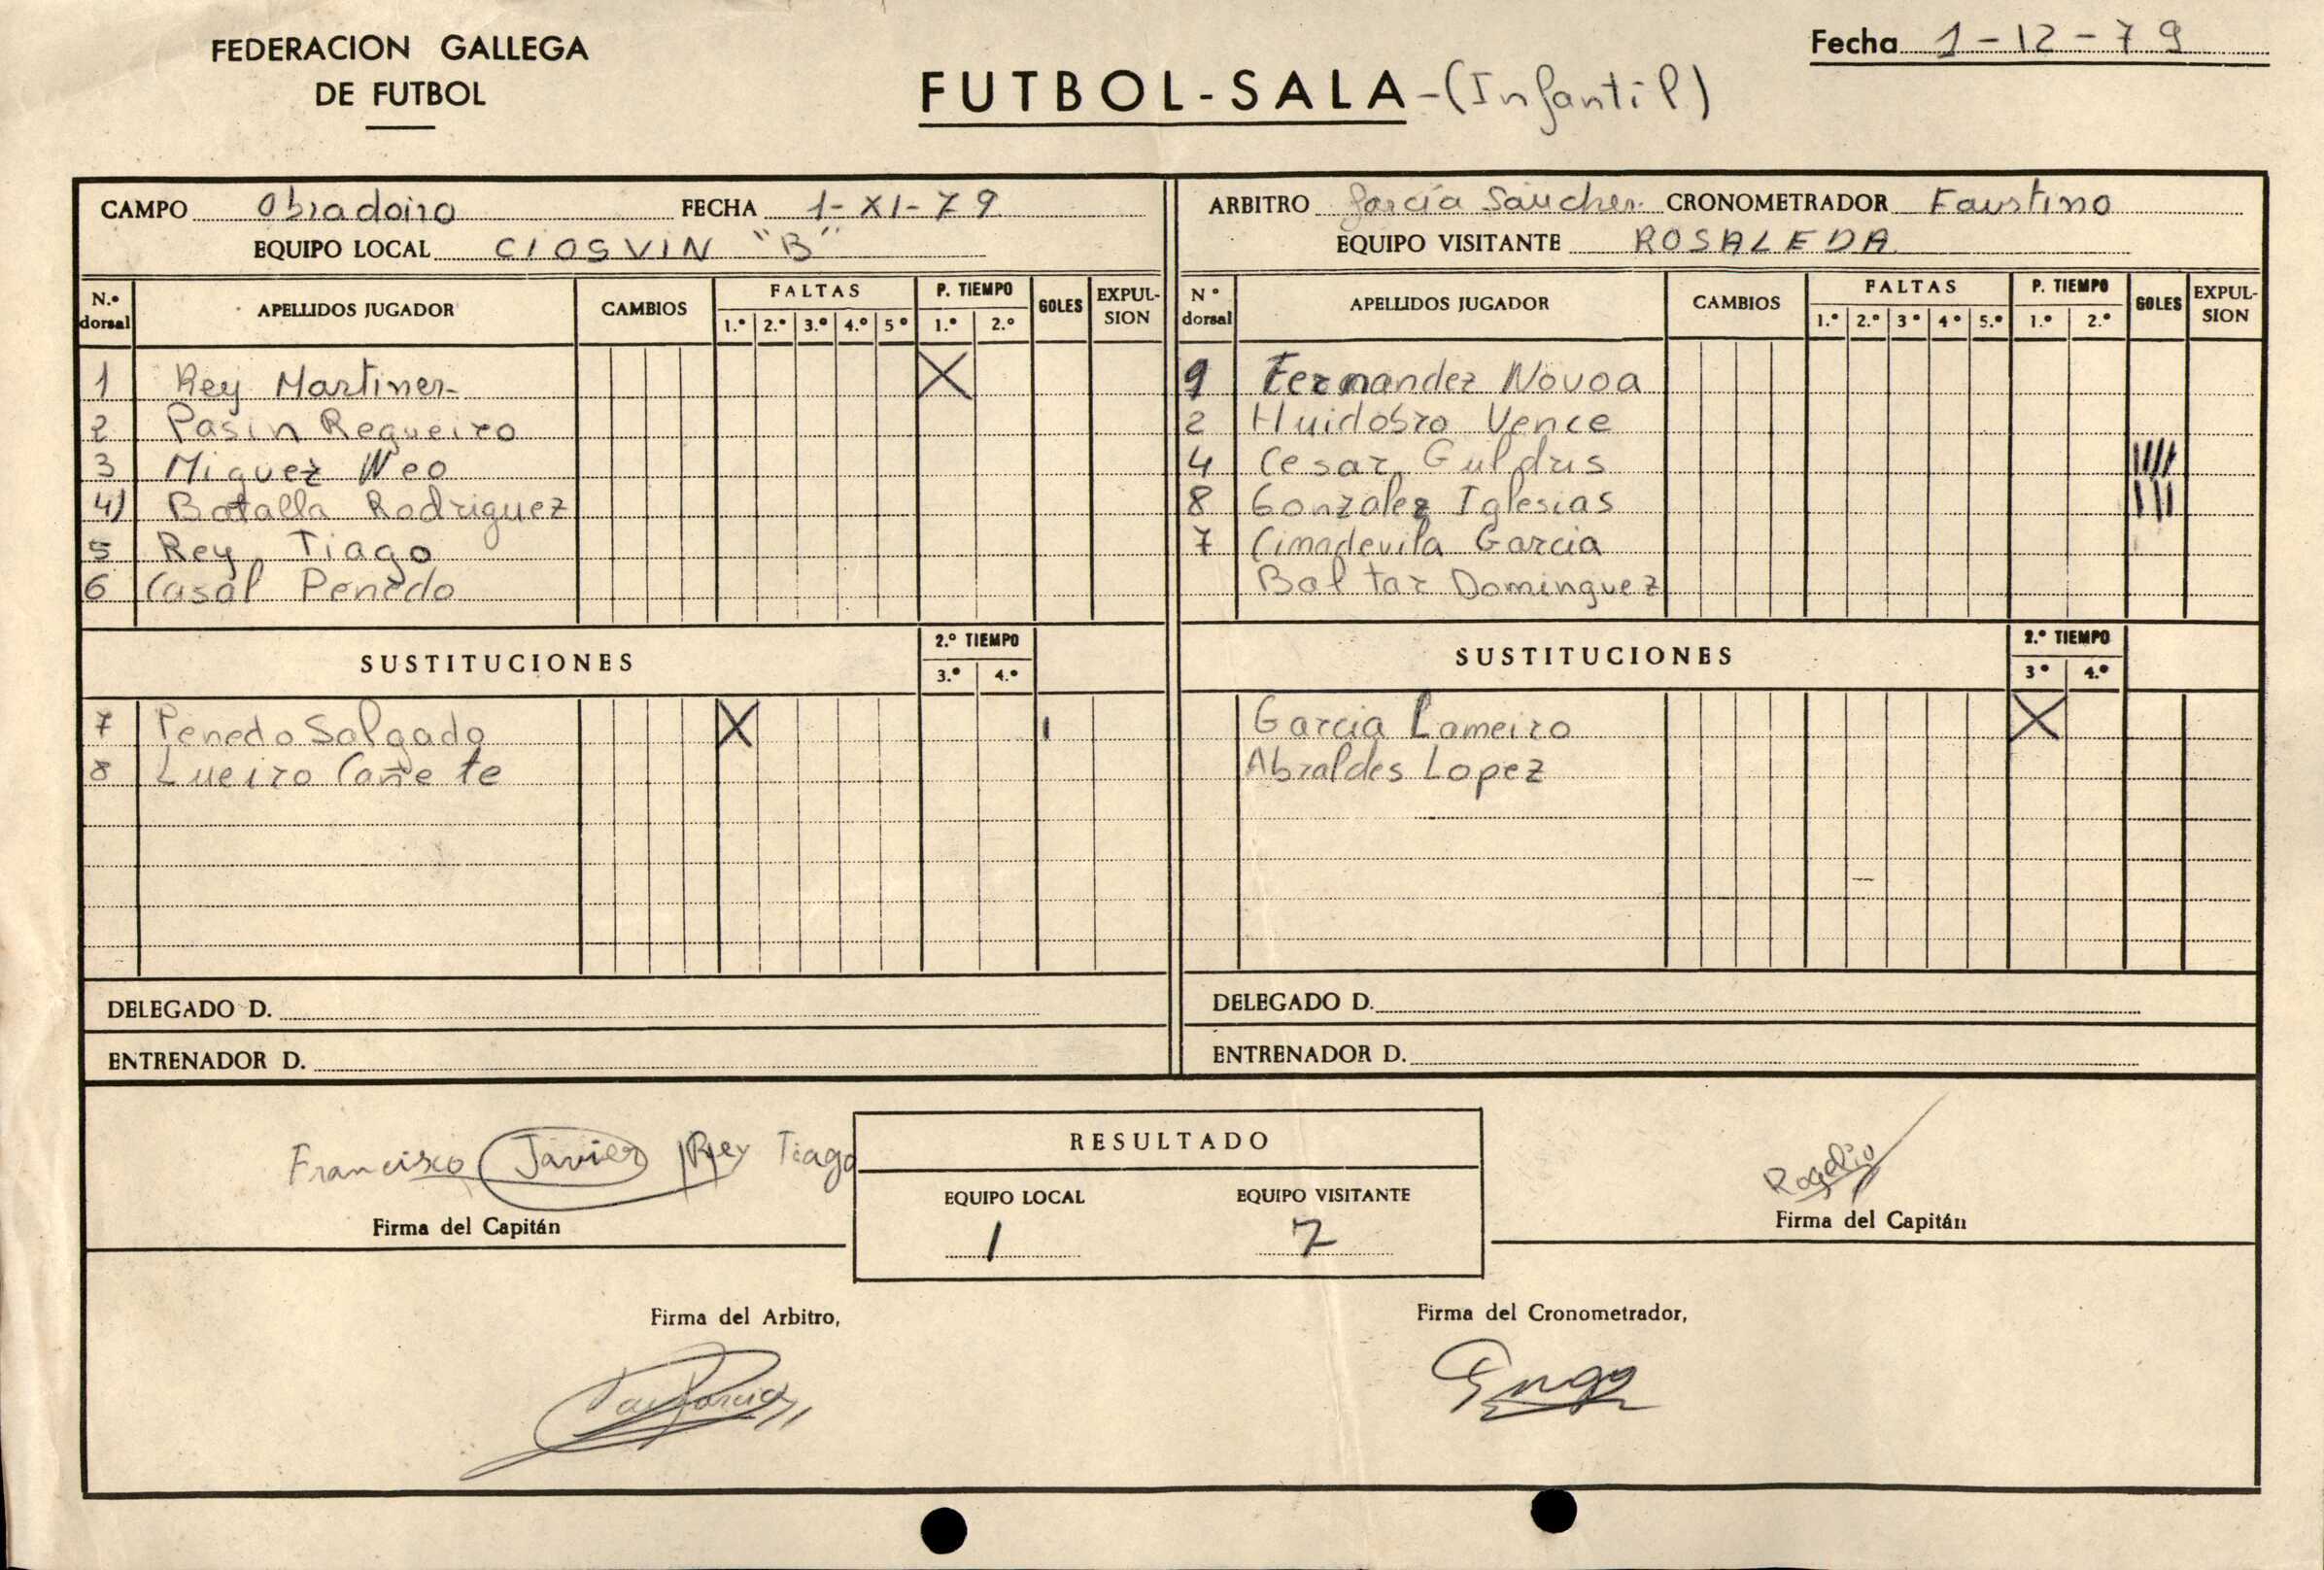 FEDERACION GALLEGA
DE FUTBOL
FUTBOL-SALA-(Infantil)
Fecha 1-12-79
CAMPO Obradoiro FECHA 1-XI-79
EQUIPO LOCAL CIOSVIN "B"
ARBITRO García Sánchez CRONOMETRADOR Faustino
EQUIPO VISITANTE ROSALEDA
N.º dorsal APELLIDOS JUGADOR CAMBIOS FALTAS 1.º 2.º 3.º 4.º 5º P. TIEMPO 1.º 2.º GOLES EXPULSION
1 Rey Martinez X
2 Pasin Regueiro
3 Miguez Neo
4) Batalla Rodriguez
5 Rey Tiago
6 Casal Penedo
SUSTITUCIONES 2.º TIEMPO 3.º 4.º
7 Penedo Salgado X I
8 Lueiro Cañete
DELEGADO D.
ENTRENADOR D.
Nº dorsal APELLIDOS JUGADOR CAMBIOS FALTAS 1.º 2.º 3º 4º 5.º P. TIEMPO 1.º 2.º GOLES EXPULSION
9 Fernandez Novoa
2 Huidobro Vence
4 Cesar Guldris IIII
8 Gonzalez Iglesias III
7 Cimadevila Garcia
Baltar Dominguez
SUSTITUCIONES 2.º TIEMPO 3º 4.º
Garcia Lameiro X
Abraldes Lopez
DELEGADO D.
ENTRENADOR D.
Francisco Javier Rey Tiago
Firma del Capitán
RESULTADO
EQUIPO LOCAL EQUIPO VISITANTE
1 7
Rogelio
Firma del Capitán
Firma del Arbitro,
Firma del Cronometrador,